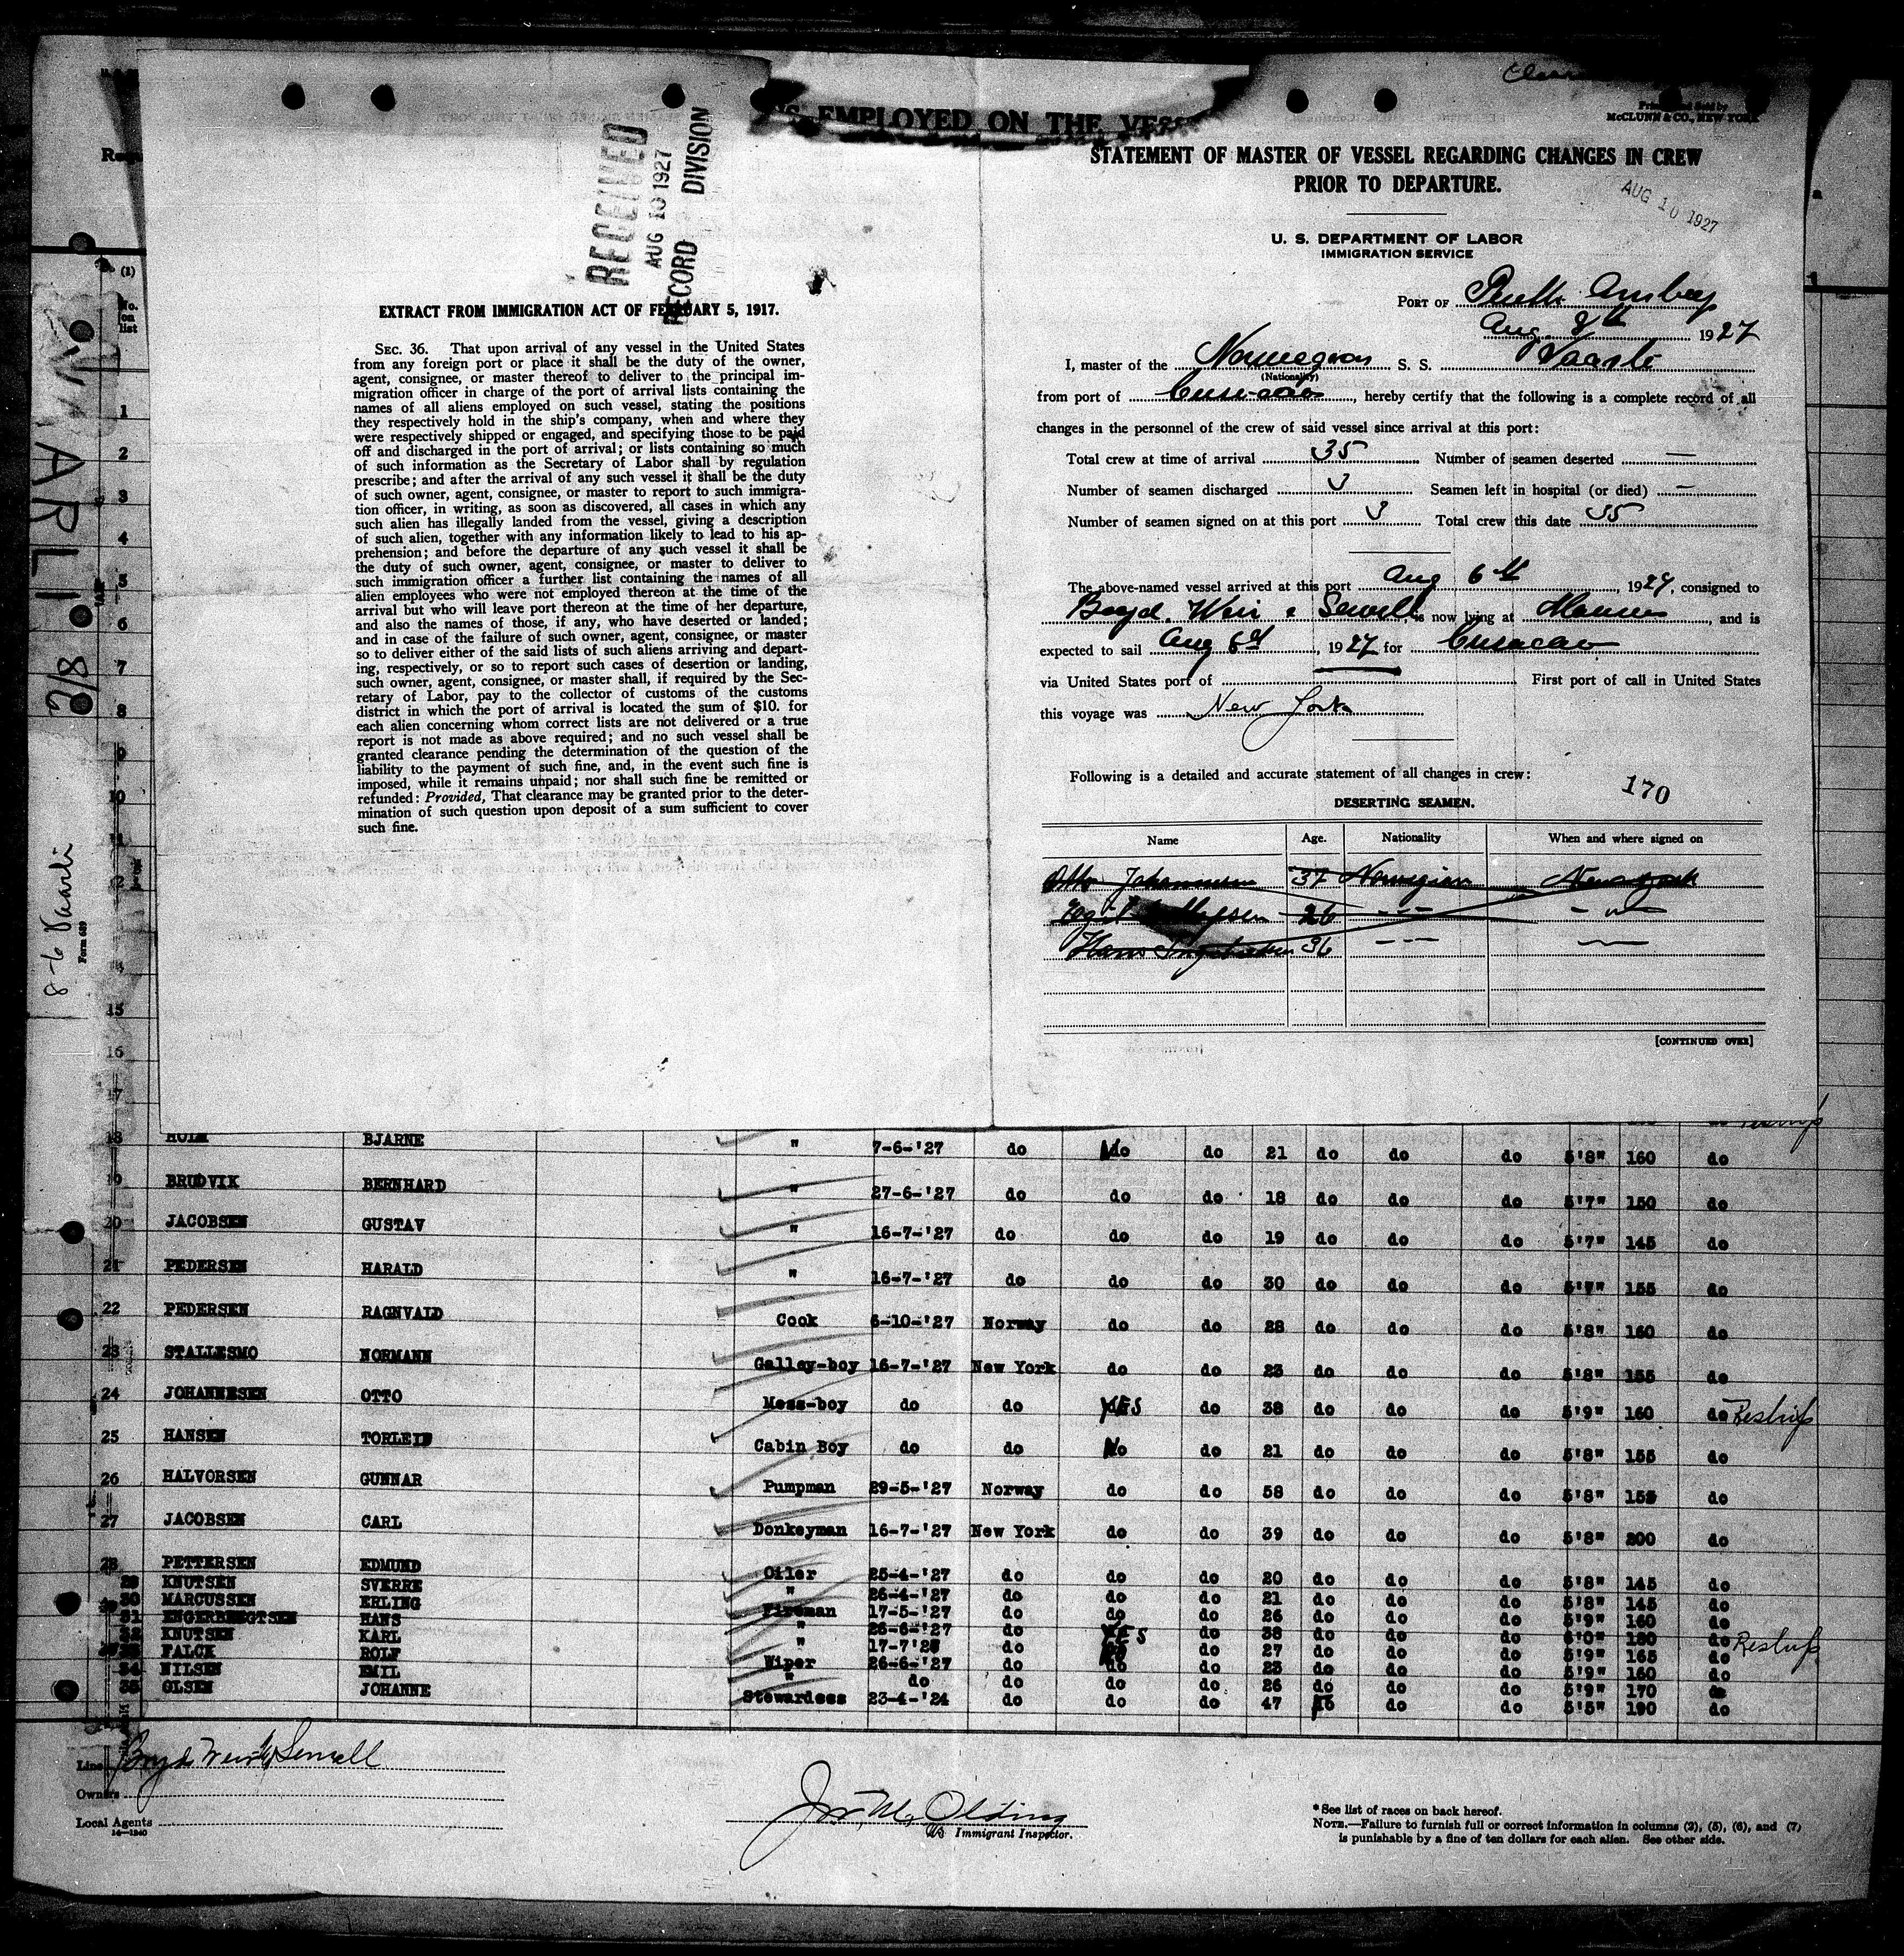 YS EMPLOYED ON THE VESS
McCLUNN & CO., NEW YORK
RECEIVED
AUG 10 1927
RECORD DIVISION
EXTRACT FROM IMMIGRATION ACT OF FEBRUARY 5, 1917.
SEC. 36. That upon arrival of any vessel in the United States
from any foreign port or place it shall be the duty of the owner,
agent, consignee, or master thereof to deliver to the principal im-
migration officer in charge of the port of arrival lists containing the
names of all aliens employed on such vessel, stating the positions
they respectively hold in the ship's company, when and where they
were respectively shipped or engaged, and specifying those to be paid
off and discharged in the port of arrival; or lists containing so much
of such information as the Secretary of Labor shall by regulation
prescribe; and after the arrival of any such vessel it shall be the duty
of such owner, agent, consignee, or master to report to such immigra-
tion officer, in writing, as soon as discovered, all cases in which any
such alien has illegally landed from the vessel, giving a description
of such alien, together with any information likely to lead to his ap-
prehension; and before the departure of any such vessel it shall be
the duty of such owner, agent, consignee, or master to deliver to
such immigration officer a further list containing the names of all
alien employees who were not employed thereon at the time of the
arrival but who will leave port thereon at the time of her departure,
and also the names of those, if any, who have deserted or landed;
and in case of the failure of such owner, agent, consignee, or master
so to deliver either of the said lists of such aliens arriving and depart-
ing, respectively, or so to report such cases of desertion or landing,
such owner, agent, consignee, or master shall, if required by the Sec-
retary of Labor, pay to the collector of customs of the customs
district in which the port of arrival is located the sum of $10. for
each alien concerning whom correct lists are not delivered or a true
report is not made as above required; and no such vessel shall be
granted clearance pending the determination of the question of the
liability to the payment of such fine, and, in the event such fine is
imposed, while it remains unpaid; nor shall such fine be remitted or
refunded: Provided, That clearance may be granted prior to the deter-
mination of such question upon deposit of a sum sufficient to cover
such fine.
STATEMENT OF MASTER OF VESSEL REGARDING CHANGES IN CREW
PRIOR TO DEPARTURE.
AUG 10 1927
U. S. DEPARTMENT OF LABOR
IMMIGRATION SERVICE
PORT OF Perth Amboy
Aug. 8th 1927
I, master of the Norwegian S. S. Vaarli
(Nationality)
from port of Curacao, hereby certify that the following is a complete record of all
changes in the personnel of the crew of said vessel since arrival at this port:
Total crew at time of arrival 35 Number of seamen deserted —
Number of seamen discharged 3 Seamen left in hospital (or died) —
Number of seamen signed on at this port 3 Total crew this date 35
The above-named vessel arrived at this port Aug 6th, 1927, consigned to
Boyd, Weir & Sewell is now lying at, and is
expected to sail Aug 8th, 1927 for Curacao
via United States port of First port of call in United States
this voyage was New York
Following is a detailed and accurate statement of all changes in crew:
170
DESERTING SEAMEN.
Name Age. Nationality When and where signed on
Otto Johannesen 37 Norwegian New York
26 - - -
Hans 36 - - -
[CONTINUED OVER]
VAARLI 8/6
8-6 Vaarli
Form 689
(1)
No. on list
1
2
3
4
5
6
7
8
9
10
11
12
14
15
16
17
18 HOLM BJARNE " 7-6-'27 do No do 21 do do do 5'8" 160 do
19 BRUDVIK BERNHARD " 27-6-'27 do do do 18 do do do 5'7" 150 do
20 JACOBSEN GUSTAV " 16-7-'27 do do do 19 do do do 5'7" 145 do
21 PEDERSEN HARALD " 16-7-'27 do do do 30 do do do 5'7" 155 do
22 PEDERSEN RAGNVALD Cook 6-10-'27 Norway do do 28 do do do 5'8" 160 do
23 STALLESMO NORMANN Galley-boy 16-7-'27 New York do do 23 do do do 5'8" 155 do
24 JOHANNESEN OTTO Mess-boy do do YES do 38 do do do 5'9" 160 do
25 HANSEN TORLEIF Cabin Boy do do No do 21 do do do 5'8" 155 do
26 HALVORSEN GUNNAR Pumpman 29-5-'27 Norway do do 58 do do do 5'8" 155 do
27 JACOBSEN CARL Donkeyman 16-7-'27 New York do do 39 do do do 5'8" 200 do
28 PETTERSEN EDMUND Oiler 25-4-'27 do do do 20 do do do 5'8" 145 do
29 KNUTSEN SVERRE " 26-4-'27 do do do 21 do do do 5'8" 145 do
30 MARCUSSEN ERLING Fireman 17-5-'27 do do do 26 do do do 5'9" 160 do
31 ENGERBREGTSEN HANS " 26-6-'27 do YES do 38 do do do 6'0" 180 do
32 KNUTSEN KARL " 17-7'2 do do 27 do do do 5'9" 165 do
33 FALCK ROLF Wiper 26-6-'27 do do do 23 do do do 5'9" 160 do
34 NILSEN EMIL " do do do do 26 do do do 5'9" 170 do
35 OLSEN JOHANNE Stewardess 23-4-'24 do do do 47 do do do 5'5" 190 do
Line Boyd Weir & Sewell
Owners
Local Agents
14-1240
Jos. M. Olding
US Immigrant Inspector.
* See list of races on back hereof.
NOTE.—Failure to furnish full or correct information in columns (2), (5), (6), and (7)
is punishable by a fine of ten dollars for each alien. See other side.